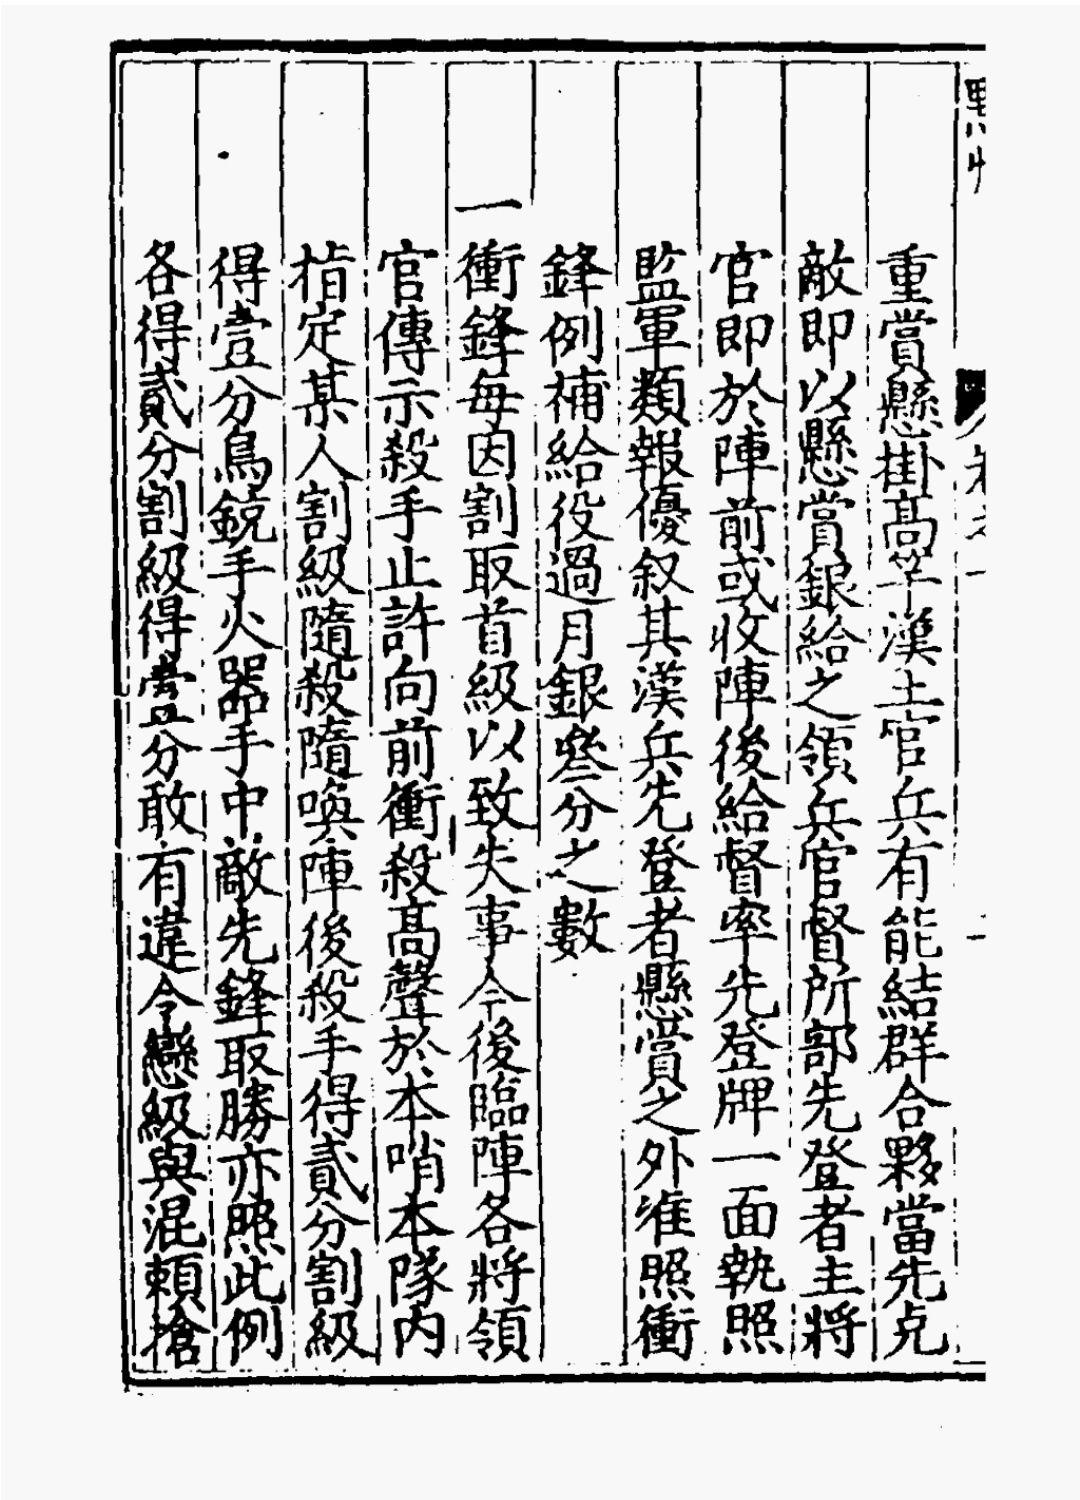 重賞懸掛高竿漢土官兵有能結群合夥當先克
敵即以懸賞銀給之領兵官督所部先登者主將
官即於陣前或收陣後給督率先登牌一面執照
監軍類報優叙其漢兵先登者懸賞之外准照衝
鋒例補給役過月銀叄分之數
一衝鋒每因割取首級以致失事今後臨陣各將領
官傳示殺手止許向前衝殺高聲於本哨本隊內
指定某人割級隨殺隨喚陣後殺手得貳分割級
得壹分鳥銃手火器手中敵先鋒取勝亦照此例
各得貳分割級得壹分敢有違令戀級與混賴搶